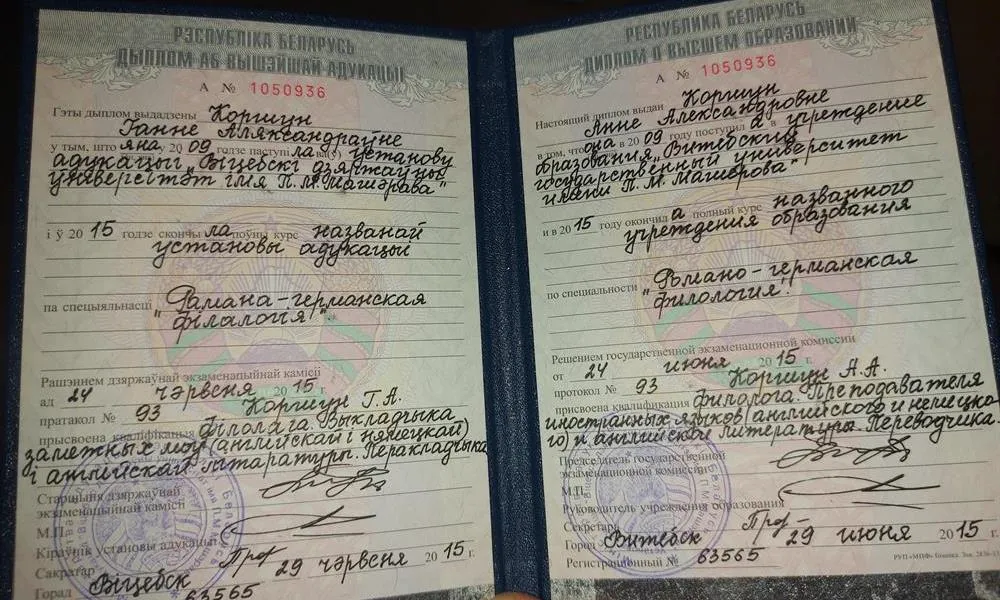 РЭСПУБЛІКА БЕЛАРУСЬ
ДЫПЛОМ АБ ВЫШЭЙШАЙ АДУКАЦЫІ
А № 1050936
Гэты дыплом выдадзены Коршун
Ганне Аляксандраўне
у тым, што яна у 20 09 годзе паступіла ва(ў) установу
адукацыі „Віцебскі дзяржаўны
ўніверсітэт імя П.М. Машэрава"
і ў 20 15 годзе скончыла поўны курс названай
установы адукацыі
па спецыяльнасці „Рамана-германская
філалогія".
Рашэннем дзяржаўнай экзаменацыйнай камісіі
ад 24 чэрвеня 20 15 г.
пратакол № 93 Коршун Г.А.
прысвоена кваліфікацыя філолага. Выкладчыка
замежных моў (англійскай і нямецкай)
і англійскай літаратуры. Перакладчыка
Старшыня дзяржаўнай
экзаменацыйнай камісіі
М.П.
Кіраўнік установы адукацыі
Сакратар
Горад Віцебск 29 чэрвеня 20 15 г.
63565
РЕСПУБЛИКА БЕЛАРУСЬ
ДИПЛОМ О ВЫСШЕМ ОБРАЗОВАНИИ
А № 1050936
Настоящий диплом выдан Коршун
Анне Александровне
в том, что она в 20 09 году поступила в учреждение
образования „Витебский
государственный университет
имени П.М. Машерова"
и в 20 15 году окончила полный курс названного
учреждения образования
по специальности „Романо-германская
филология".
Решением государственной экзаменационной комиссии
от 24 июня 20 15 г.
протокол № 93 Коршун А.А.
присвоена квалификация филолога. Преподавателя
иностранных языков (английского и немецко-
го) и английской литературы. Переводчика.
Председатель государственной
экзаменационной комиссии
М.П.
Руководитель учреждения образования
Секретарь
Город Витебск 29 июня 20 15 г.
Регистрационный № 63565